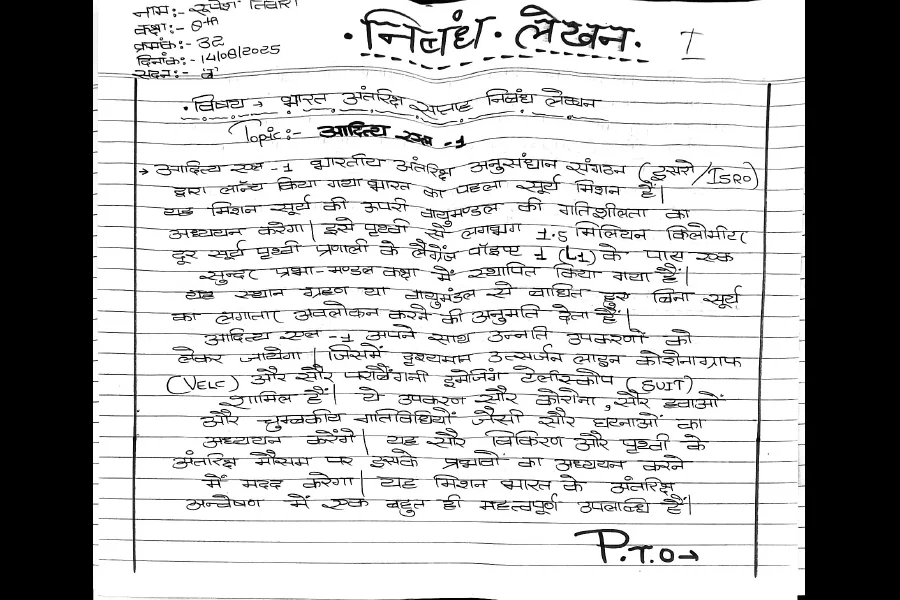 नाम:- रूपेश तिवारी
कक्षा:- 8th
क्रमांक:- 32
दिनांक:- 14/08/2025
सदन:-
. निबंध . लेखन . I
. विषय → भारत अंतरिक्ष सप्ताह निबंध लेखन
Topic:- आदित्य एल -1
→ आदित्य एल -1 भारतीय अंतरिक्ष अनुसंधान संगठन (इसरो/ISRO)
द्वारा लॉन्च किया गया भारत का पहला सूर्य मिशन है|
यह मिशन सूर्य की उपरी वायुमण्डल की गतिशीलता का
अध्ययन करेगा| इसे पृथ्वी से लगभग 1.5 मिलियन किलोमीटर
दूर सूर्य पृथ्वी प्रणाली के लैग्रेंज पॉइण्ट 1 (L1) के पास एक
सुन्दर प्रभा-मण्डल कक्षा में स्थापित किया गया हैं|
यह स्थान ग्रहण या वायुमंडल से बाधित हुए बिना सूर्य
का लगातार अवलोकन करने की अनुमति देता हैं|
आदित्य एल -1 अपने साथ उन्नति उपकरणों को
लेकर जायेगा| जिसमें दृश्यमान उत्सर्जन लाइन कोरोनाग्राफ
(VELC) और सौर पराबैंगनी इमेजिंग टेलीस्कोप (SUIT)
शामिल हैं| ये उपकरण सौर कोरोना, सौर हवाओं
और चुम्बकीय गतिविधियों जैसी सौर घटनाओं का
अध्ययन करेंगे| यह सौर विकिरण और पृथ्वी के
अंतरिक्ष मौसम पर इसके प्रभावों का अध्ययन करने
में मदद करेगा| यह मिशन भारत के अंतरिक्ष
अन्वेषण में एक बहुत ही महत्वपूर्ण उपलब्धि हैं|
P.T.O→